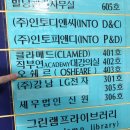 605호
(주)인토디앤씨(INTO D&C)
(주)인토피앤디(INTO P&D)
클라메드(CLAMED) 401호
직부인ACADEMY대강의실 402호
오쉐르(OSHEARE) 403호
(주)강남LG전자 301호
세무법인신원 306호
그린램프라이브러리
library)